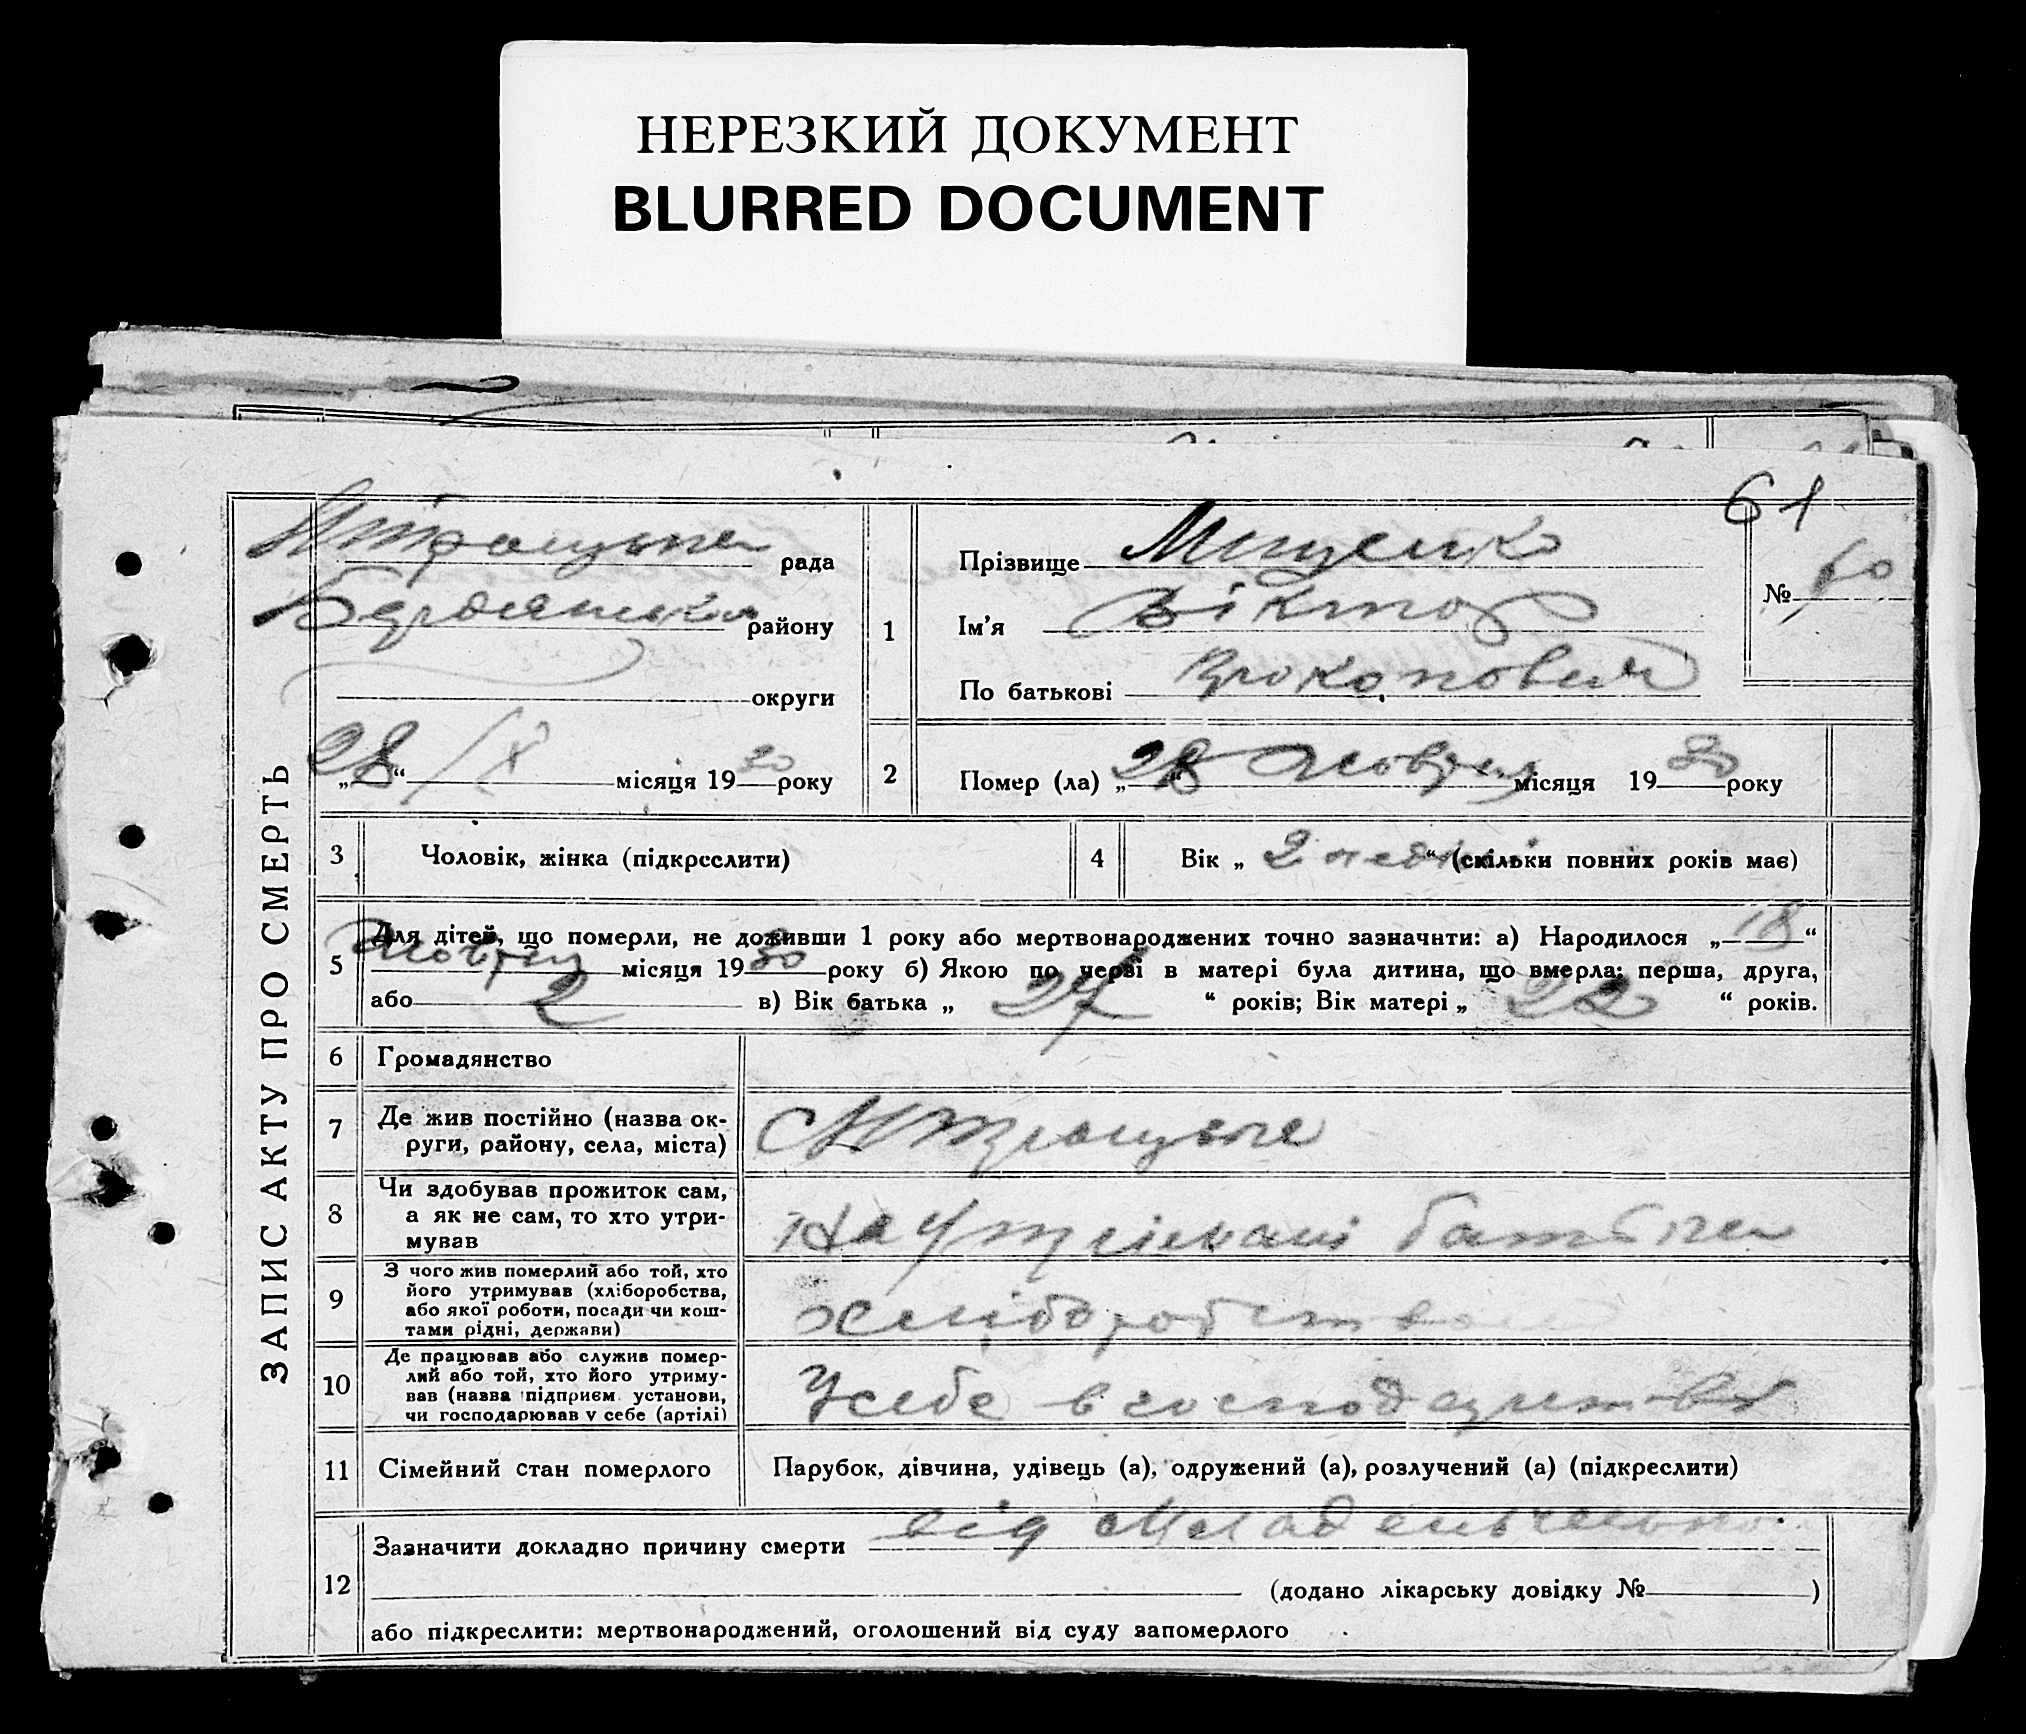 НЕРЕЗКИЙ ДОКУМЕНТ
BLURRED DOCUMENT
61
ЗАПИС АКТУ ПРО СМЕРТЬ
рада
району
округи
„28“ /X місяця 1930 року
1
Прізвище Мищенко
Ім'я Віктор
По батькові Прокопович
№ 60
2
Помер (ла) „28“ Жовтня місяця 1930 року
3
Чоловік, жінка (підкреслити)
4
Вік „2 неділі“ (скільки повних років має)
5
Для дітей, що померли, не доживши 1 року або мертвонароджених точно зазначити: а) Народилося „18“
Жовтня місяця 1930 року б) Якою по черзі в матері була дитина, що вмерла: перша, друга,
або 2 в) Вік батька „27“ років; Вік матері „22“ років.
6
Громадянство
7
Де жив постійно (назва ок-
руги, району, села, міста)
с
8
Чи здобував прожиток сам,
а як не сам, то хто утри-
мував
На утриманні батька
9
З чого жив померлий або той, хто
його утримував (хліборобства,
або якої роботи, посади чи кош-
тами рідні, держави)
хліборобства
10
Де працював або служив помер-
лий або той, хто його утриму-
вав (назва підприєм. установи,
чи господарював у себе (артілі)
У себе в господарстві
11
Сімейний стан померлого
Парубок, дівчина, удівець (а), одружений (а), розлучений (а) (підкреслити)
12
Зазначити докладно причину смерти від
(додано лікарську довідку № )
або підкреслити: мертвонароджений, оголошений від суду запомерлого